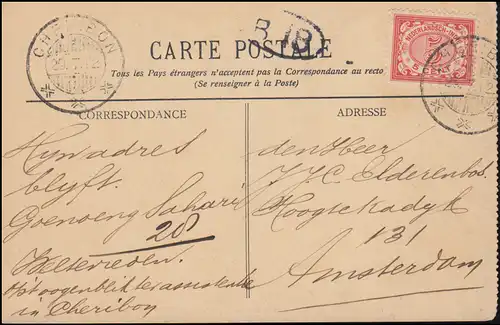 CHERIBON
B
CARTE POSTALE
Tous les Pays étrangers n'acceptent pas la Correspondance au recto
(Se renseigner à la Poste)
NEDERLANDSCH-INDIË
5
CORRESPONDANCE
Mijn adres
blijft.
Goenoeng Sahari
28
Weltevreden.
Op't oogenblik ter assistentie
in Cheribon
ADRESSE
den Heer
J.J.C. Elderenbos.
Hoogtekadijk
131
Amsterdam